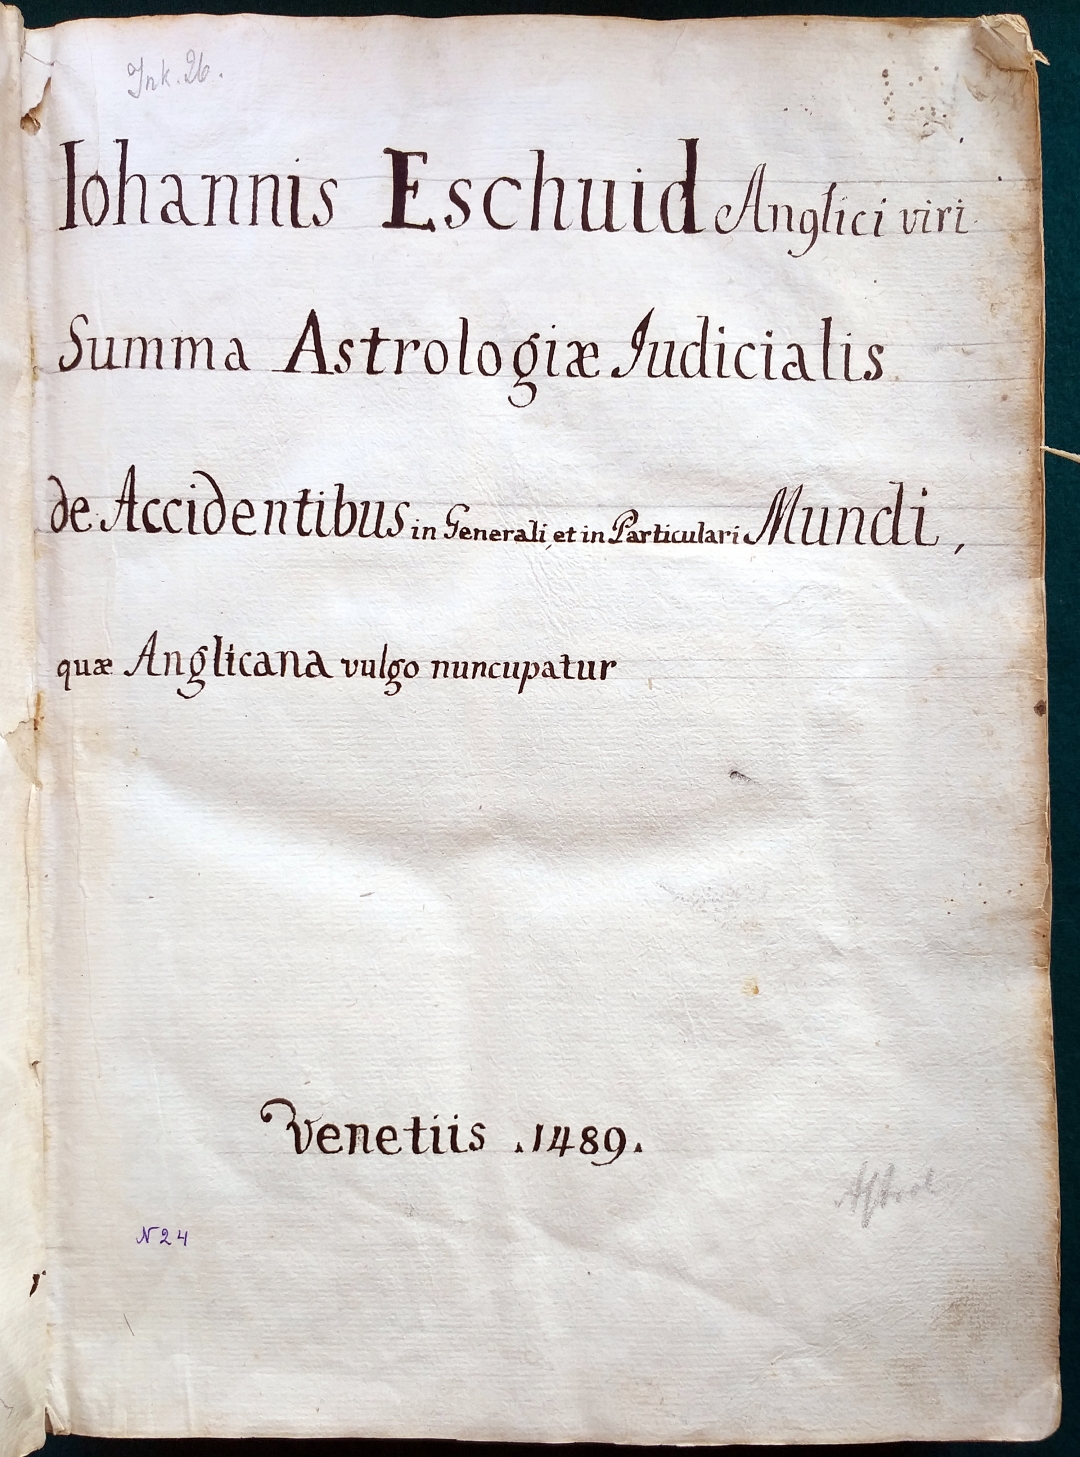 Ink. 26.
Iohannis Eschuid Anglici viri
Summa Astrologiæ Judicialis
de Accidentibus in Generali, et in Particulari Mundi,
quæ Anglicana vulgo nuncupatur
Venetiis .1489.
N 24